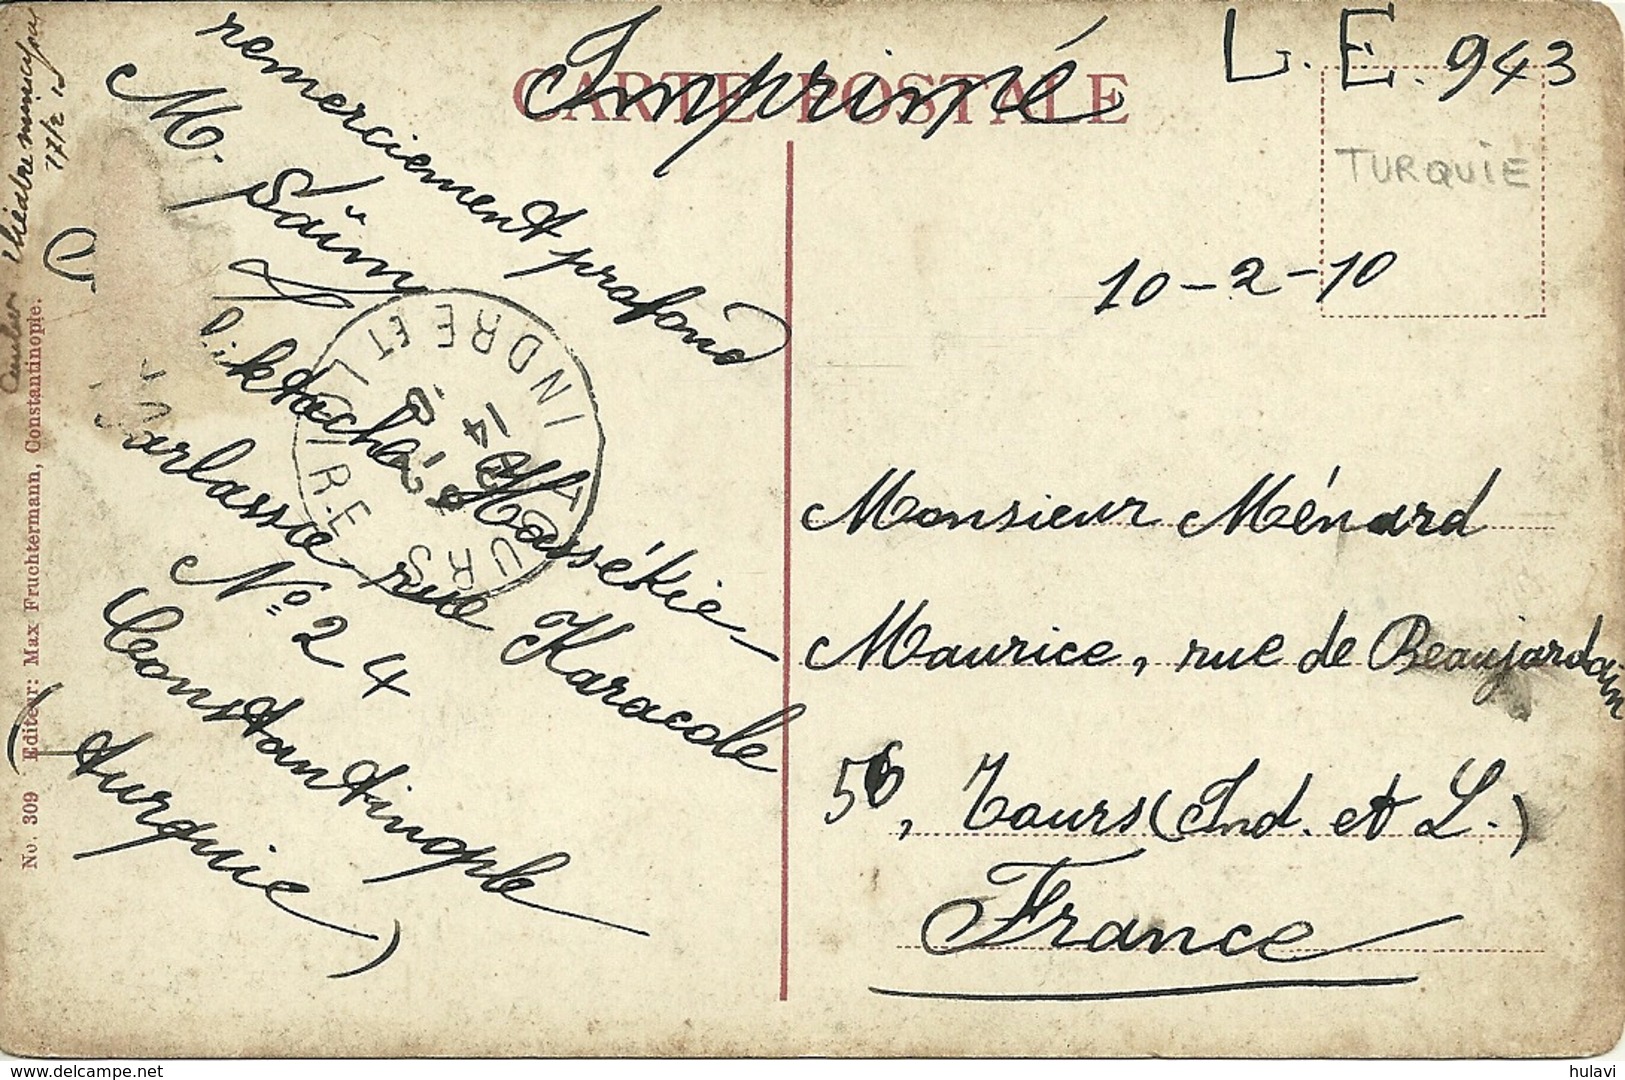 CARTE POSTALE
Imprimé
L. E. 943
TURQUIE
10-2-10
remerciement profond
M. Saïm
Hassékie
rue Karacole
No 24
Constantinople
(turquie)
Monsieur Ménard
Maurice, rue de Beaujardin
56, Tours (Ind. et L.)
France
TOURS
INDRE ET LOIRE
14
théatre
17/2 10
No. 309 Editeur: Max Fruchtermann, Constantinople.
delcampe.net
hulavi